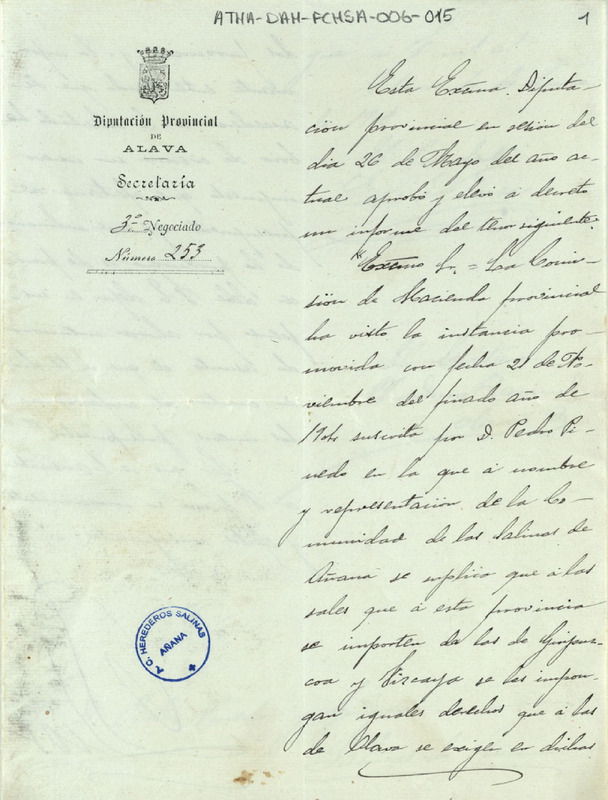 ATHA-DAH-FCHSA-006-015
1
Diputación Provincial
DE
ALAVA
Secretaría
3er Negociado
Número 253
Esta Excma. Diputa-
ción provincial en sesión del
dia 26 de Mayo del año ac-
tual aprobó y elevó á decreto
un informe del tenor siguiente.
"Excmo Sr. = La Comi-
sión de Hacienda provincial
ha visto la instancia pro-
movida con fecha 21 de No-
viembre del finado año de
suscrita por D. Pedro Pi-
nedo en la que á nombre
y representación de la Co-
munidad de las Salinas de
Añana se suplica que á las
sales que á esta provincia
se importen de las de Guipuz-
coa y Vizcaya se les impon-
gan iguales derechos que á las
de Alava se exigen en dichas
A. C. HEREDEROS SALINAS
AÑANA